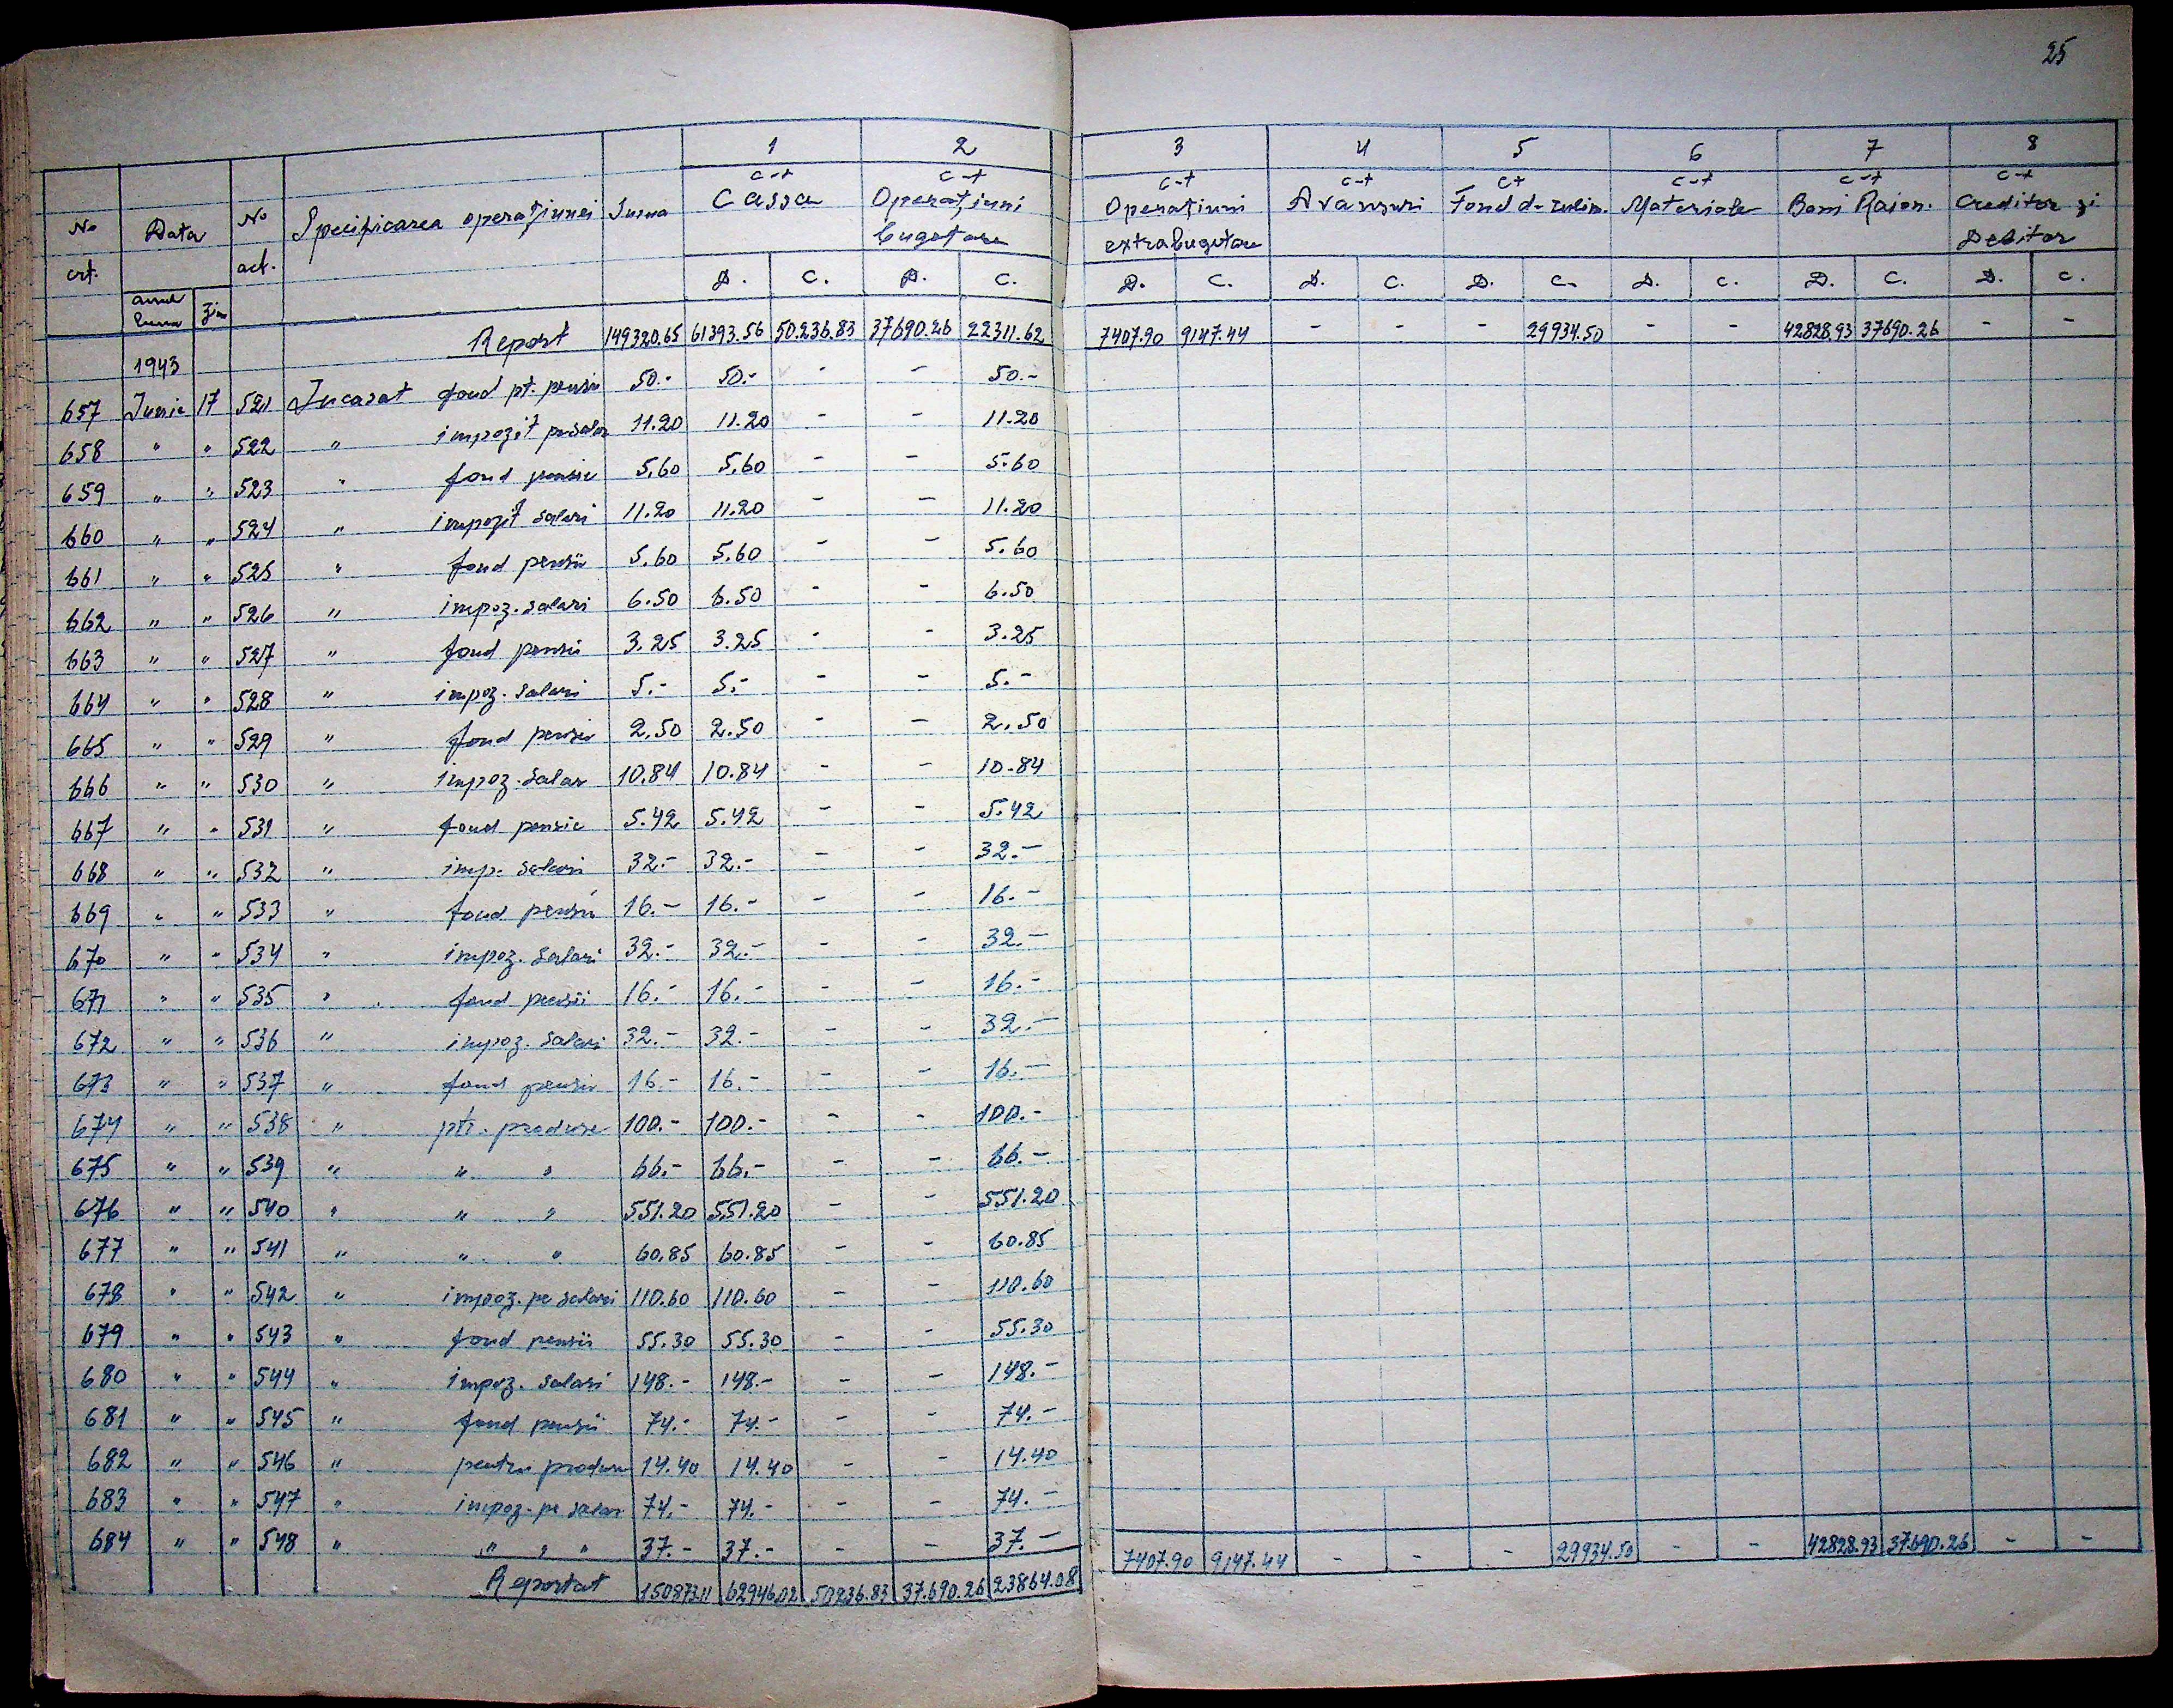 25
1 2 3 4 5 6 7 8
No crt. Data No act. Specificarea operațiunei Suma c-t Cassa c-t Operațiuni bugetare c-t Operațiuni extrabugetare c-t Avansuri ct Fond d. rulm. c-t Materiale c-t Boni Raion. c-t Creditor și Debitor
anul luna Ziua D. C. D. C. D. C. D. C. D. C. D. C. D. C. D. C.
Report 149320.65 61393.56 50.236.83 37690.26 22311.62 7407.90 9147.44 - - - 29934.50 - - 42828.93 37690.26 - -
1943
657 Junie 17 521 Incasat fond pt. pensii 50.- 50.- - - 50.-
658 " " 522 " impozit pe salar 11.20 11.20 - - 11.20
659 " " 523 " fond pensie 5.60 5.60 - - 5.60
660 " " 524 " impozit salari 11.20 11.20 - - 11.20
661 " " 525 " fond pensii 5.60 5.60 - - 5.60
662 " " 526 " impoz. salari 6.50 6.50 - - 6.50
663 " " 527 " fond pensii 3.25 3.25 - - 3.25
664 " " 528 " impoz. salari 5.- 5.- - - 5.-
665 " " 529 " fond pensii 2.50 2.50 - - 2.50
666 " " 530 " impoz. salar 10.84 10.84 - - 10.84
667 " " 531 " fond pensie 5.42 5.42 - - 5.42
668 " " 532 " imp. salarii 32.- 32.- - - 32.-
669 " " 533 " fond pensii 16.- 16.- - - 16.-
670 " " 534 " impoz. salari 32.- 32.- - - 32.-
671 " " 535 " fond pensii 16.- 16.- - - 16.-
672 " " 536 " impoz. salari 32.- 32.- - - 32.-
673 " " 537 " fond pensii 16.- 16.- - - 16.-
674 " " 538 " ptr. produse 100.- 100.- - - 100.-
675 " " 539 " " " 66.- 66.- - - 66.-
676 " " 540 " " " 551.20 551.20 - - 551.20
677 " " 541 " " " 60.85 60.85 - - 60.85
678 " " 542 " impoz. pe salari 110.60 110.60 - - 110.60
679 " " 543 " fond pensii 55.30 55.30 - - 55.30
680 " " 544 " impoz. salari 148.- 148.- - - 148.-
681 " " 545 " fond pensii 74.- 74.- - - 74.-
682 " " 546 " pentru produse 14.40 14.40 - - 14.40
683 " " 547 " impoz. pe salar 74.- 74.- - - 74.-
684 " " 548 " " " " 37.- 37.- - - 37.-
Reportat 150873.11 62946.02 50236.83 37.690.26 23864.08 7407.90 9147.44 - - - 29934.50 - - 42828.93 37.690.26 - -